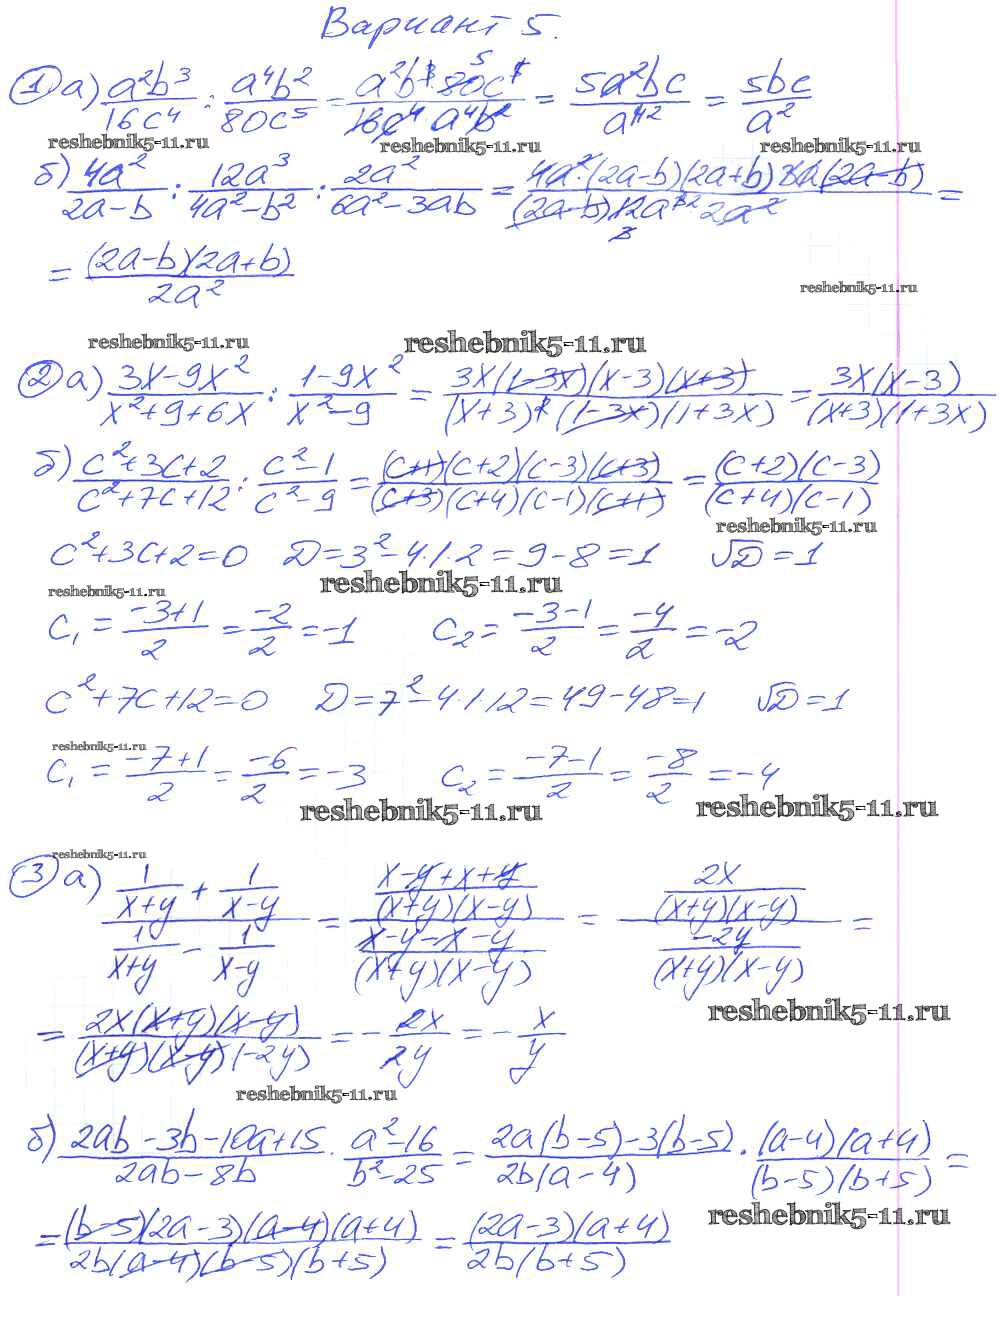 Вариант 5.
① а) a²b³/16c⁴ : a⁴b²/80c⁵ = a²b³·80c⁵/16c⁴·a⁴b² = 5a²bc/a⁴ = 5bc/a²
reshebnik5-11.ru reshebnik5-11.ru reshebnik5-11.ru
б) 4a²/(2a-b) : 12a³/(4a²-b²) : 2a²/(6a²-3ab) = 4a²·(2a-b)(2a+b)3a(2a-b)/(2a-b)12a³·2a² =
= (2a-b)(2a+b)/2a²
reshebnik5-11.ru
reshebnik5-11.ru reshebnik5-11.ru
② а) (3x-9x²)/(x²+9+6x) : (1-9x²)/(x²-9) = 3x(1-3x)(x-3)(x+3)/(x+3)²(1-3x)(1+3x) = 3x(x-3)/(x+3)(1+3x)
б) (c²+3c+2)/(c²+7c+12) : (c²-1)/(c²-9) = (c+1)(c+2)(c-3)(c+3)/(c+3)(c+4)(c-1)(c+1) = (c+2)(c-3)/(c+4)(c-1)
reshebnik5-11.ru
c²+3c+2=0 D=3²-4·1·2=9-8=1 √D=1
reshebnik5-11.ru reshebnik5-11.ru
c₁ = (-3+1)/2 = -2/2 = -1 c₂ = (-3-1)/2 = -4/2 = -2
c²+7c+12=0 D=7²-4·1·12=49-48=1 √D=1
reshebnik5-11.ru
c₁ = (-7+1)/2 = -6/2 = -3 c₂ = (-7-1)/2 = -8/2 = -4
reshebnik5-11.ru reshebnik5-11.ru
reshebnik5-11.ru
③ а) (1/(x+y) + 1/(x-y))/(1/(x+y) - 1/(x-y)) = ((x-y+x+y)/(x+y)(x-y))/((x-y-x-y)/(x+y)(x-y)) = (2x/(x+y)(x-y))/(-2y/(x+y)(x-y)) =
reshebnik5-11.ru
= 2x(x+y)(x-y)/(x+y)(x-y)(-2y) = -2x/2y = -x/y
reshebnik5-11.ru
б) (2ab-3b-10a+15)/(2ab-8b) · (a²-16)/(b²-25) = (2a(b-5)-3(b-5))/2b(a-4) · (a-4)(a+4)/(b-5)(b+5) =
reshebnik5-11.ru
= (b-5)(2a-3)(a-4)(a+4)/2b(a-4)(b-5)(b+5) = (2a-3)(a+4)/2b(b+5)